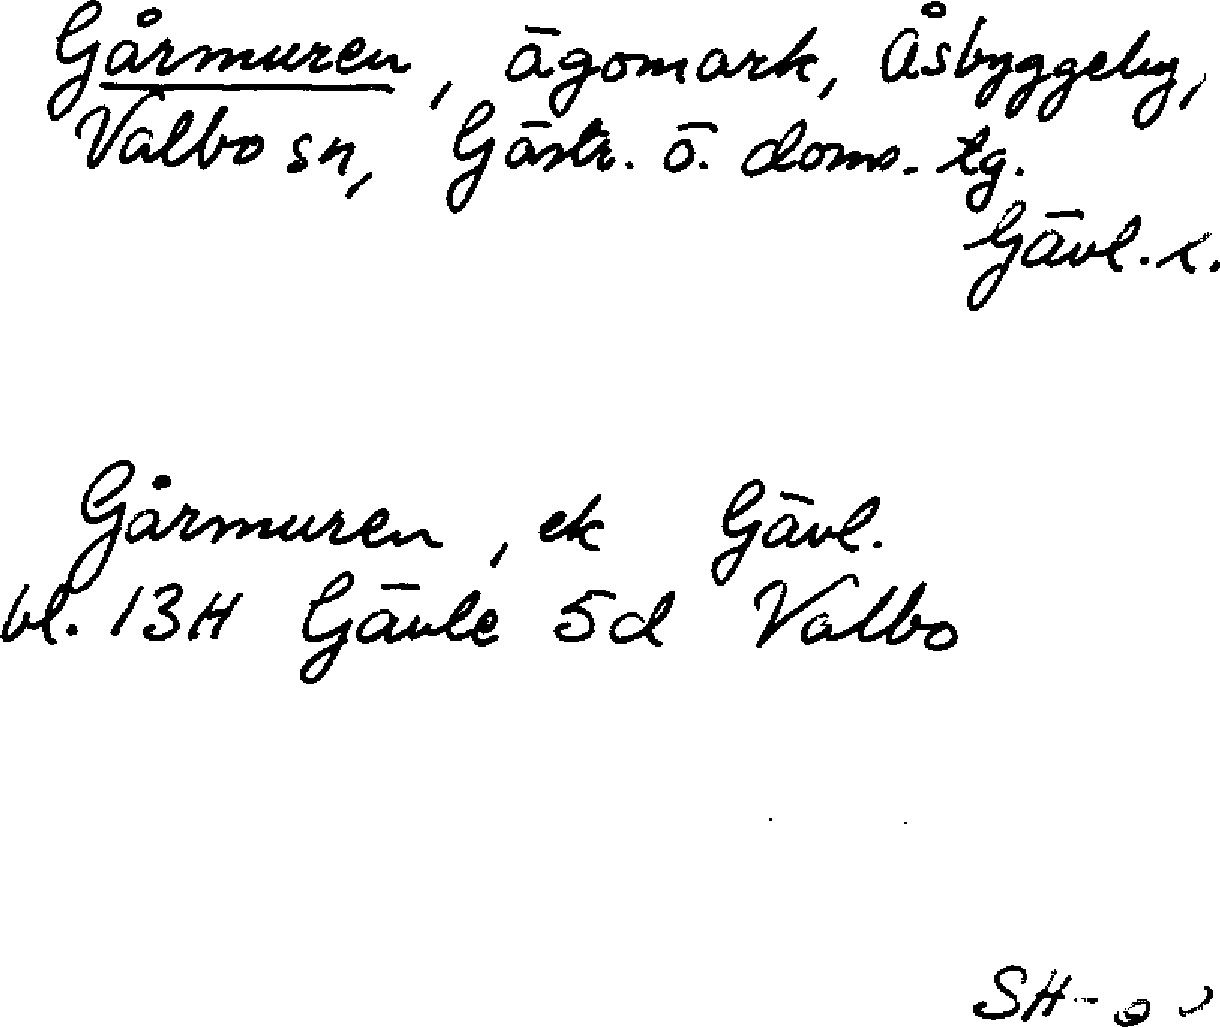 Gårmuren, ägomark, Åsbyggeby,
Valbo sn, Gästr. ö. doms. tg.
Gävl. l.
Gårmuren, ek Gävl.
bl. 13H Gävle 5d Valbo
SH